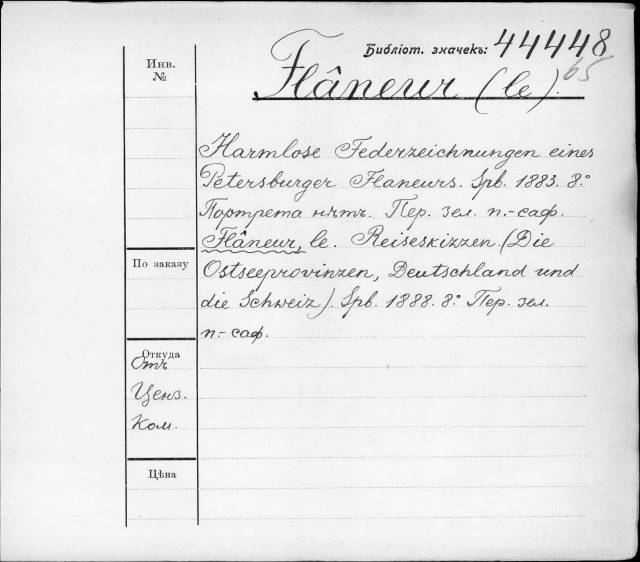 Библіот. значекъ: 44448
65
Инв.
№
Flâneur (le).
Harmlose Federzeichnungen eines
Petersburger Flaneurs. Spb. 1883. 8.°
Портрета нѣтъ. Пер. зел. п.-саф.
Flâneur, le. Reiseskizzen (Die
Ostseeprovinzen, Deutschland und
die Schweiz). Spb. 1888. 8.° Пер. зел.
п.-саф.
По заказу
Откуда
Отъ
Ценз.
Ком.
Цѣна